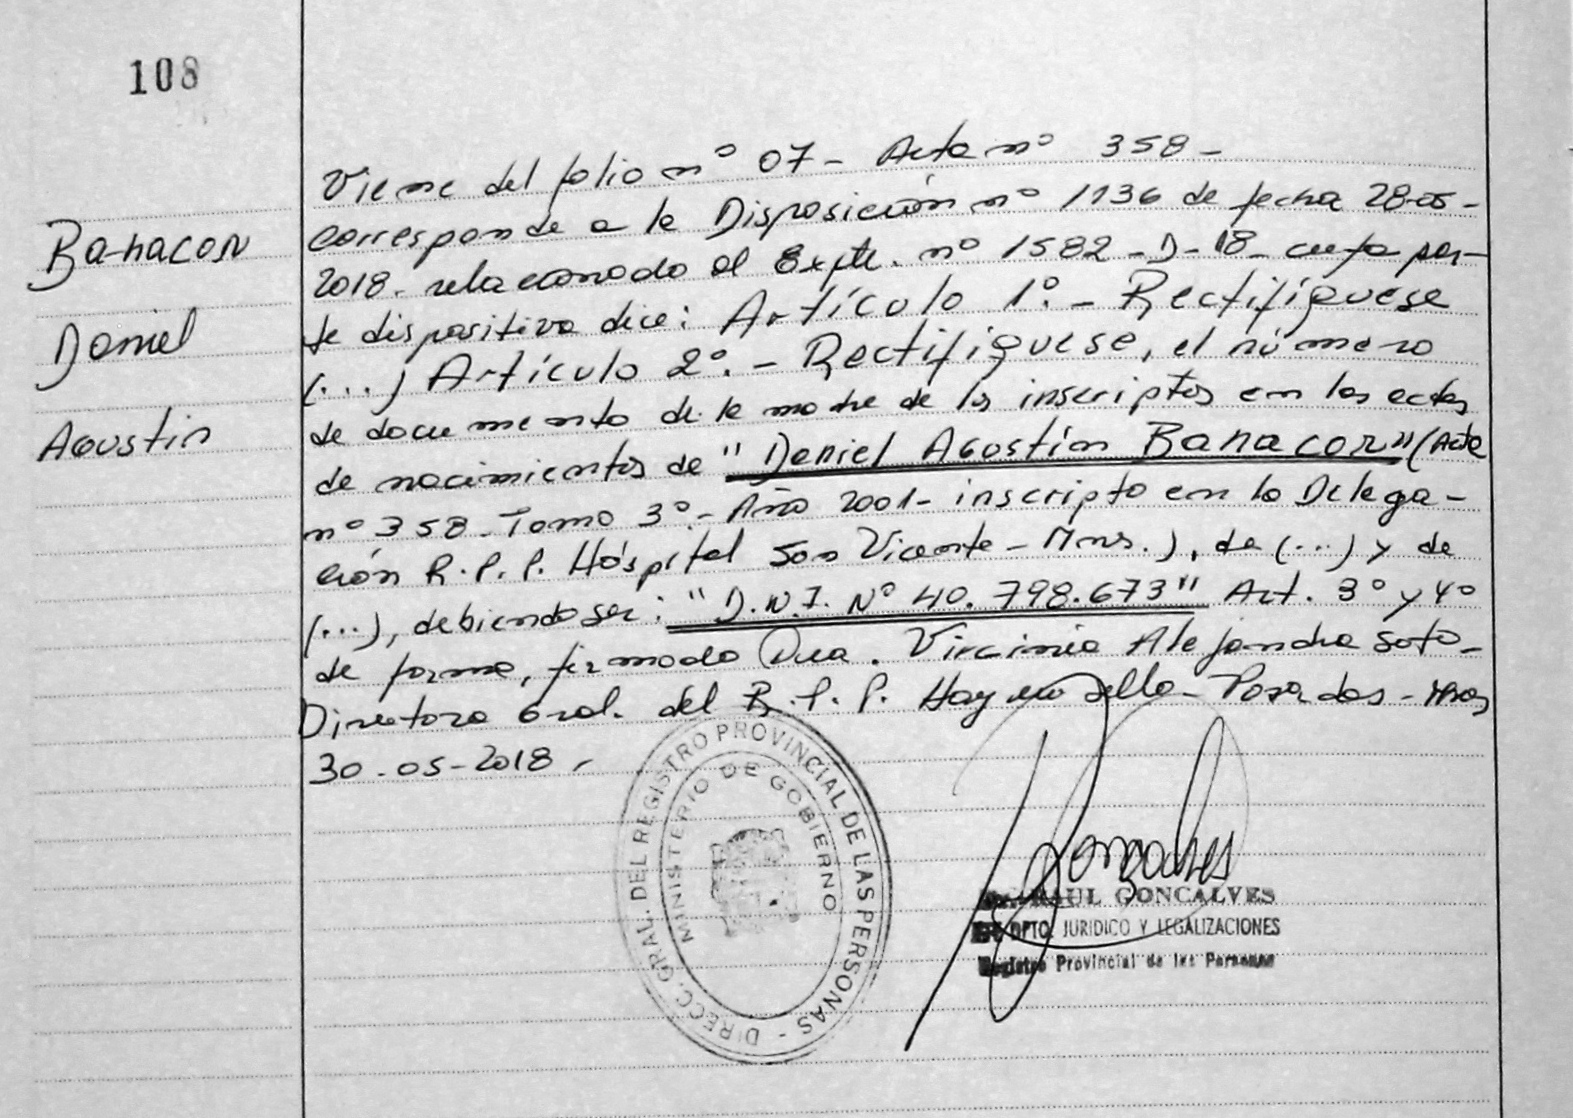 108
Banacor
Daniel
Agustin
Viene del folio nº 07 - Acta nº 358 -
corresponde a la Disposición nº 1136 de fecha 28-05-
2018. relacionado al Expte. nº 1582 - D - 18 - cuya par-
te dispositiva dice: Artículo 1º. - Rectifíquese
(...) Artículo 2º. - Rectifíquese, el número
de documento de la madre de los inscriptos en las actas
de nacimientos de "Daniel Agostín Banacor" (Acta
nº 358 - Tomo 3º - Año 2001 - inscripto en la Delega-
ción R.P.P. Hospital San Vicente - Mns.), de (...) y de
(...), debiendo ser: "D.N.I. Nº 40.798.673" Art. 3º y 4º
de forma, firmado Dra. Virginia Alejandra Soto -
Directora Gral. del R.P.P. Hay un sello - Posadas - Mnes
30-05-2018 -
DIRECC. GRAL. DEL REGISTRO PROVINCIAL DE LAS PERSONAS -
MINISTERIO DE GOBIERNO
RAUL GONCALVES
DPTO. JURIDICO Y LEGALIZACIONES
Registro Provincial de las Personas